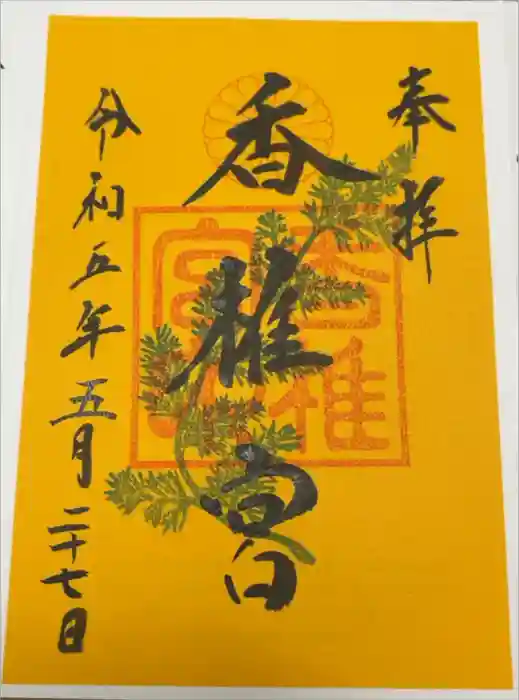 奉拝
香椎宮
香椎宮
令和五年五月二十七日